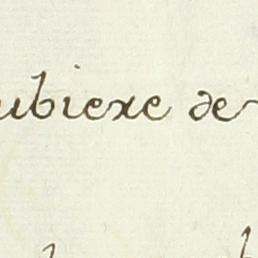 ubiexe de